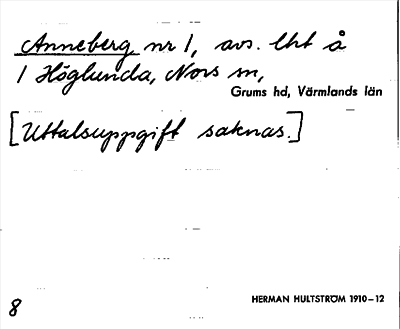 Anneberg nr 1, avs. lht å
1 Höglunda, Nors sn,
Grums hd, Värmlands län
[Uttalsuppgift saknas.]
HERMAN HULTSTRÖM 1910-12
8